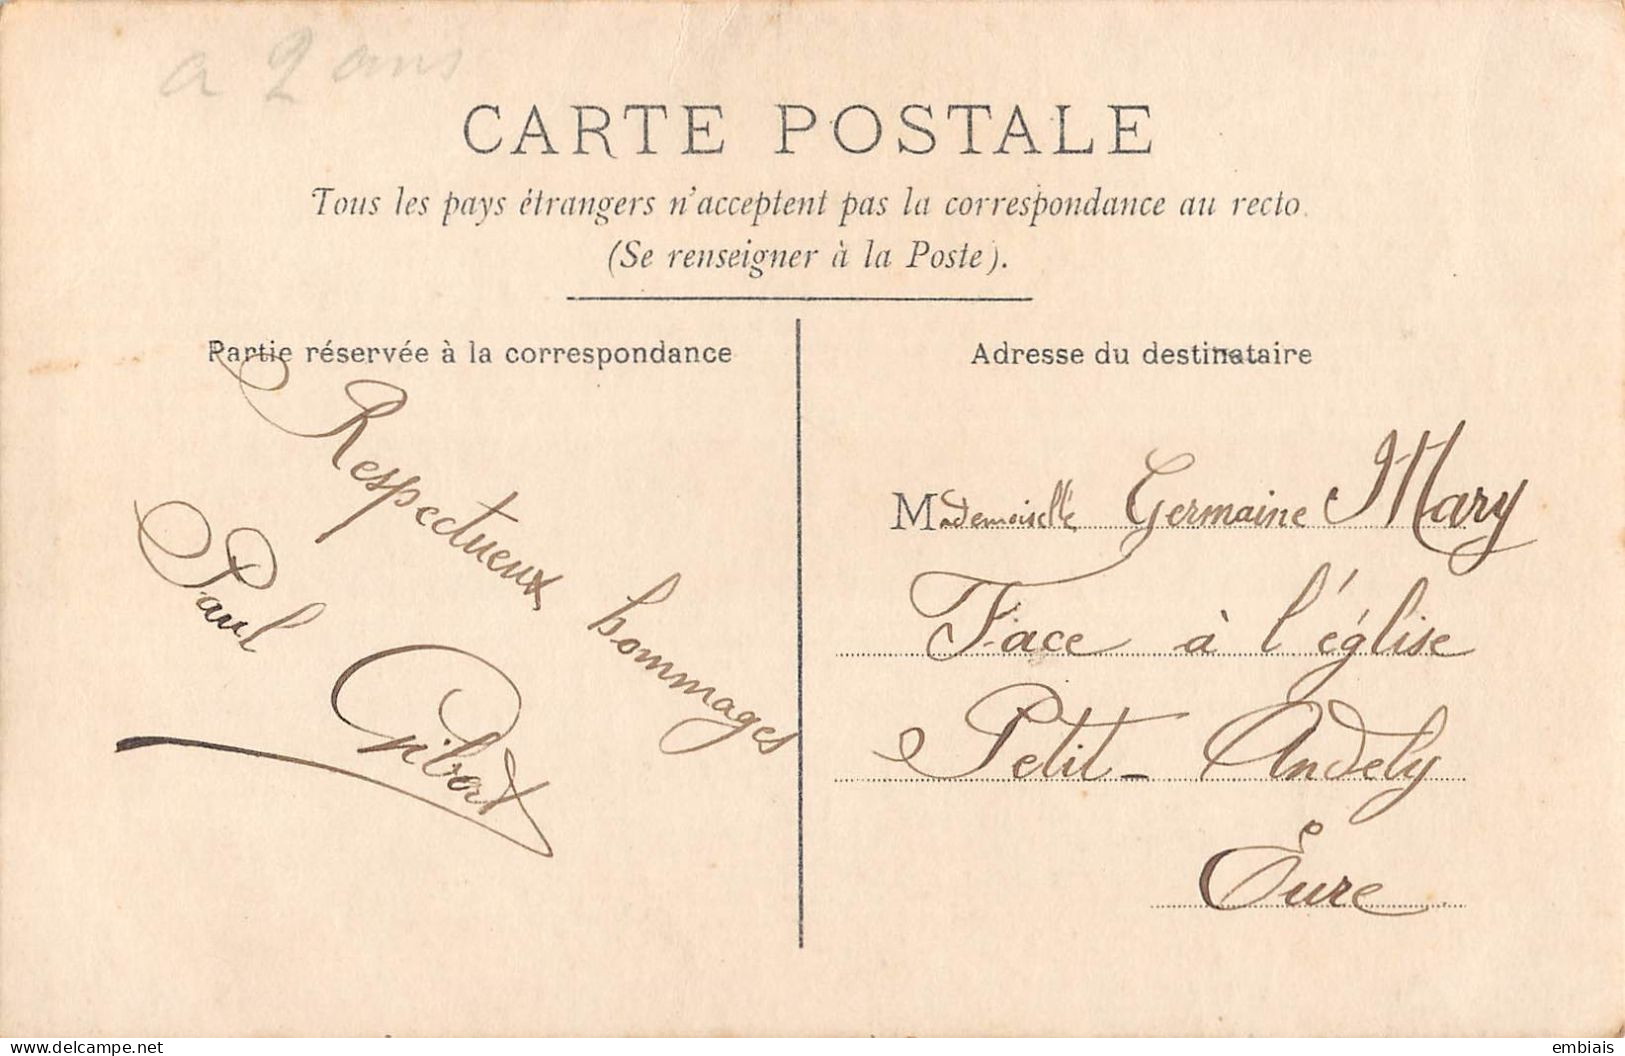 a 2 ans
CARTE POSTALE
Tous les pays étrangers n'acceptent pas la correspondance au recto.
(Se renseigner à la Poste).
Partie réservée à la correspondance
Respectueux hommages
Paul
Adresse du destinataire
Mademoiselle Germaine Mary
Face à l'église
Petit-Andely
Eure
delcampe.net
embiais